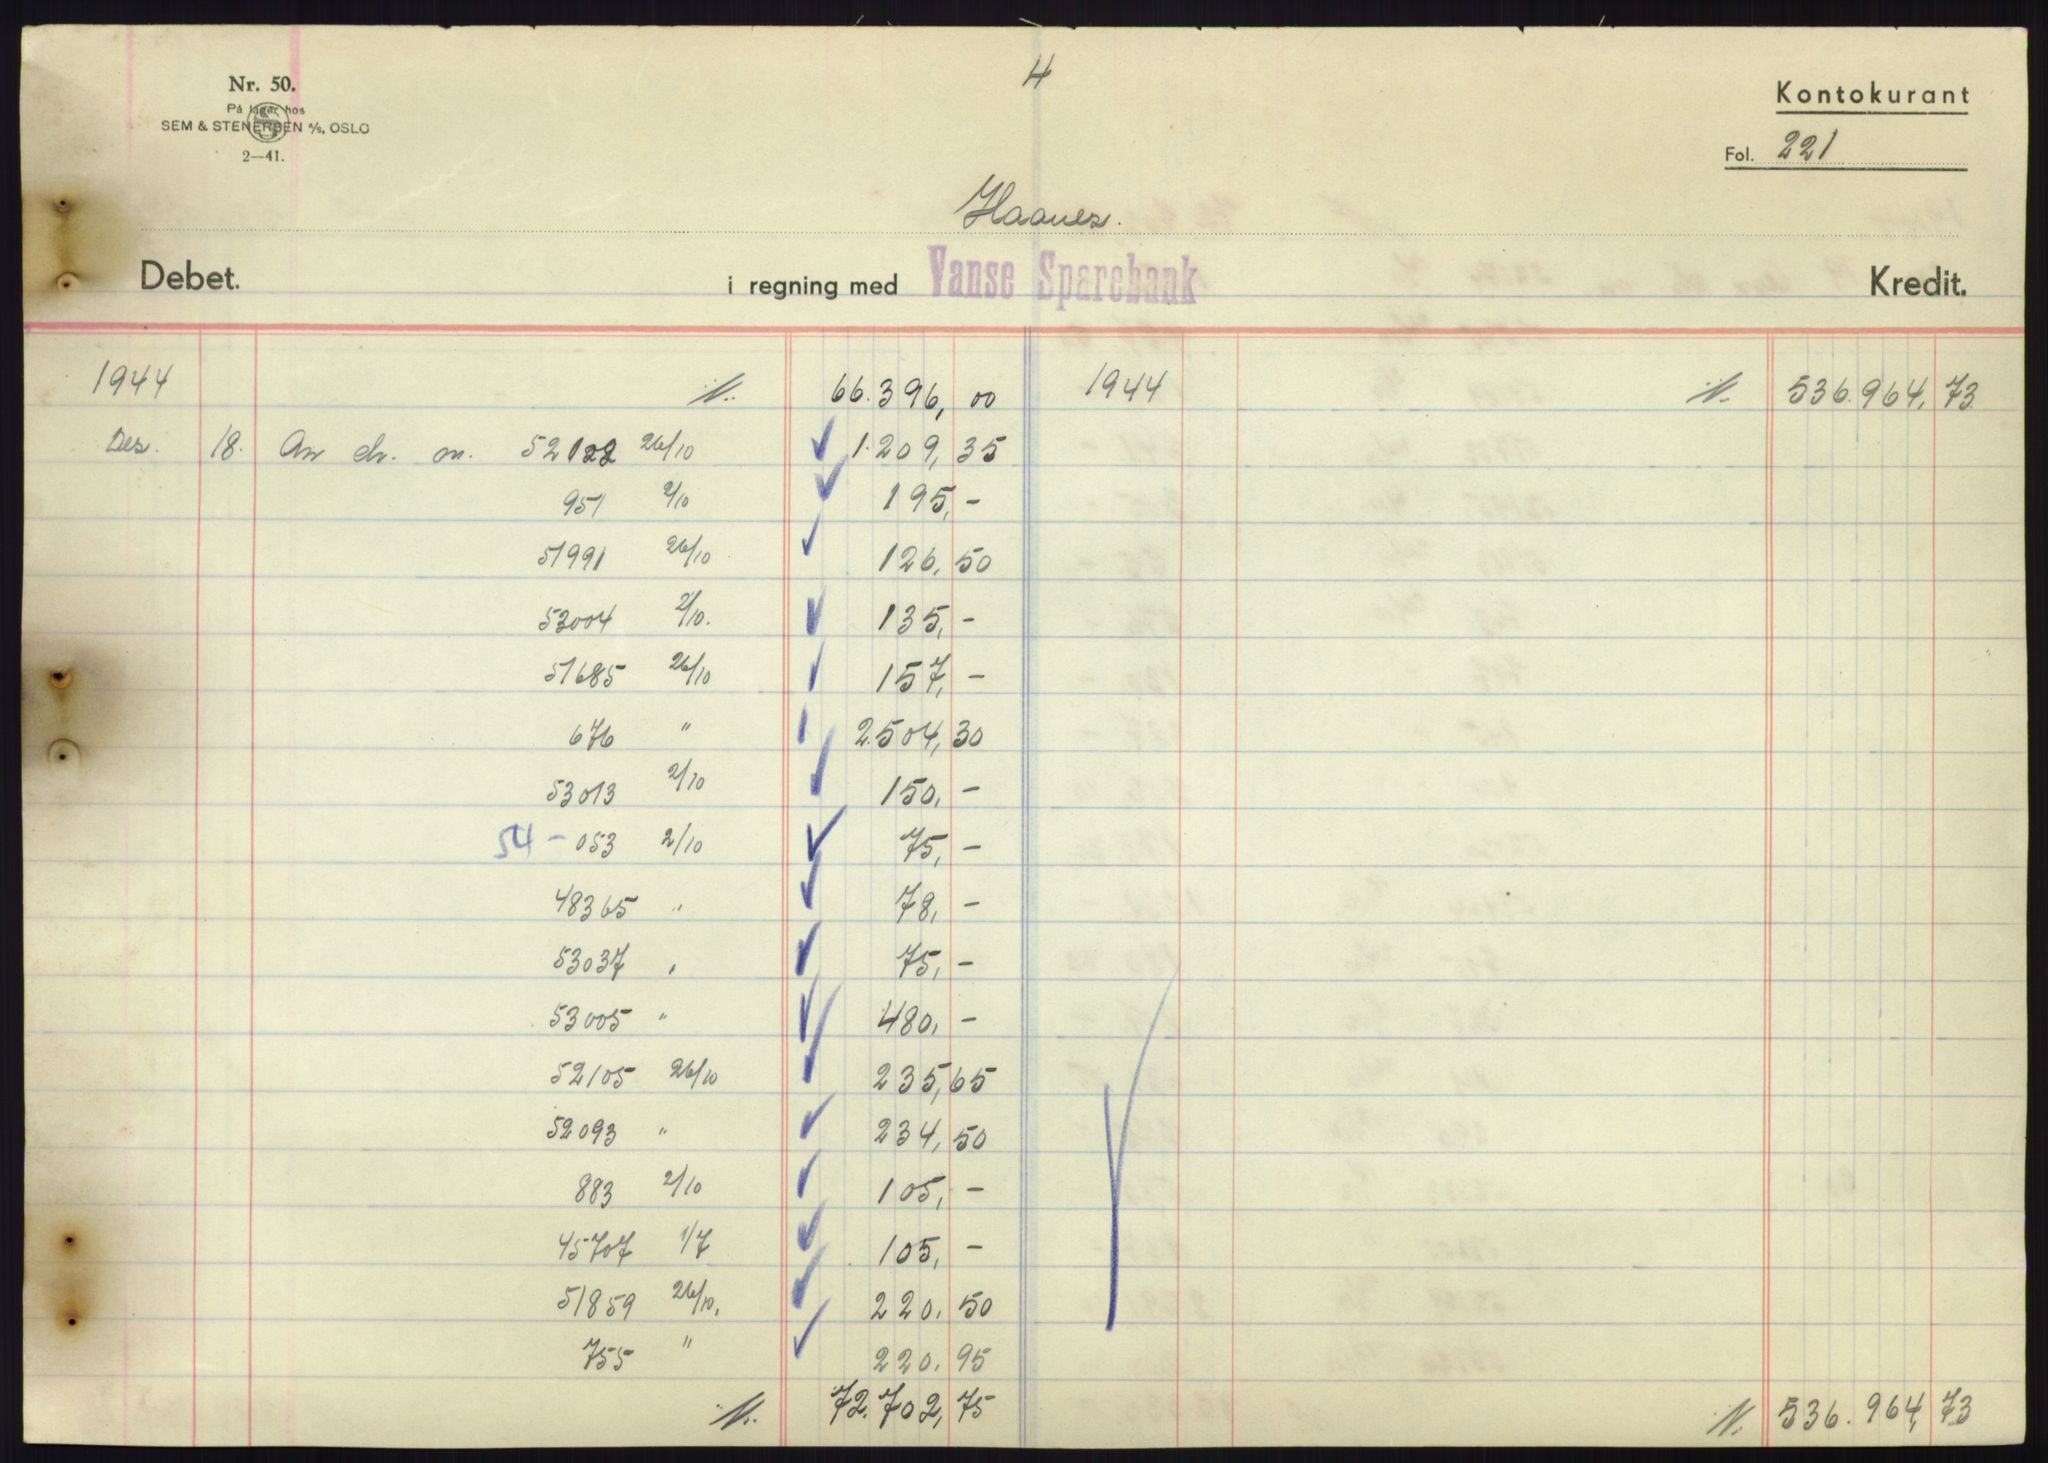 4
Nr. 50.
På lager hos
SEM & STENERSEN A/S, OSLO
2—41.
Kontokurant
Fol. 221
Haanes.
Debet.
i regning med Vanse Sparebank
Kredit.
1944 N. 66.396,00 1944 N. 536.964,73
Des. 18. An ch. m. 52122 26/10 1.209,35
951 2/10 195,-
51991 26/10 126,50
53004 2/10. 135,-
51685 26/10 157,-
676 " 2.504,30
53013 2/10 150,-
54 - 053 2/10 75,-
48365 " 78,-
53037 " 75,-
53005 " 480,-
52105 26/10 235,65
52093 " 234,50
883 2/10 105,-
45707 1/7 105,-
51859 26/10. 220.50
755 " 220.95
N. 72.702,75 N. 536.964,73